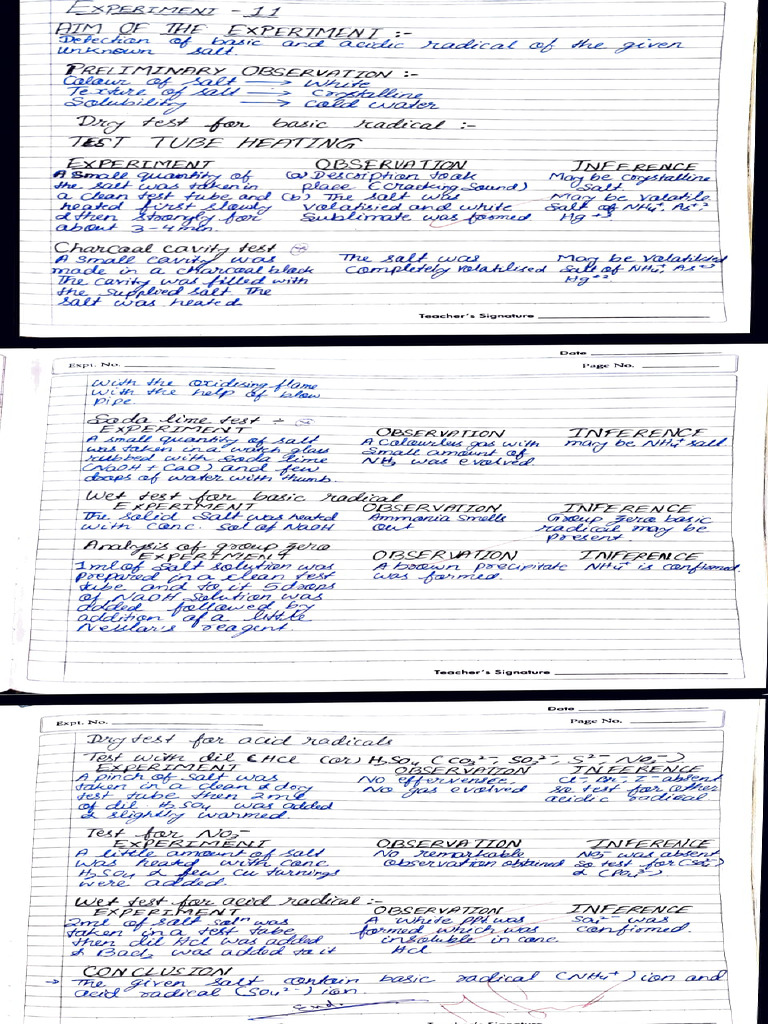 EXPERIMENT - 11
AIM OF THE EXPERIMENT :-
Detection of basic and acidic radical of the given
unknown salt.
PRELIMINARY OBSERVATION :-
Colour of salt → White
Texture of salt → Crystalline
Solubility → Cold water
Dry test for basic radical :-
TEST TUBE HEATING
EXPERIMENT OBSERVATION INFERENCE
A small quantity of (a) Descroption took May be corystalline
the salt was taken in place (cracking sound) salt
a clean test tube and (b) The salt was May be valatile
heated first slowly volatisied and white salt of NH4+, As+3
& then strongly for sublimate was formed Hg+2
about 3-4 min.
Charcoal cavity test
A small cavity was The salt was May be valatilised
made in a charcoal block completely volatilised salt of NH4+, As+3
The cavity was filled with Hg+2
the supplied salt The
salt was heated
Teacher's Signature
Date
Expt. No. Page No.
with the oxidising flame
with the help of blow
pipe.
Soda lime test :-
EXPERIMENT OBSERVATION INFERENCE
A small quantity of salt A colourless gas with may be NH4+ salt
was taken in a watch glass small amount of
rubbed with soda lime NH3 was evolved.
(NaOH + CaO) and few
drops of water with thumb.
Wet test for basic radical
EXPERIMENT OBSERVATION INFERENCE
The solid salt was heated Ammonia smells Group zero basic
with conc. sol of NaOH out radical may be
present
Analysis of group zero
EXPERIMENT OBSERVATION INFERENCE
1ml of salt solution was A brown precipitate NH4+ is confirmed
prepared in a clean test was formed.
tube and to it 5 drops
of NaOH solution was
added followed by
addition of a little
Nesslar's reagent.
Teacher's Signature
Date
Expt. No. Page No.
Dry test for acid radicals
Test with dil HCl (or) H2SO4 (CO3 2-, SO3 2-, S2-, NO2-)
EXPERIMENT OBSERVATION INFERENCE
A pinch of salt was No effervensce. Cl- Br- I- absent
taken in a clean & dry No gas evolved so test for other
test tube then 2ml acidic radical
of dil H2SO4 was added
& slightly warmed.
Test for NO3-
EXPERIMENT OBSERVATION INFERENCE
A little amount of salt No remarkable NO3- was absent
was heated with conc. observation obtained so test for (SO4 2-)
H2SO4 & few cu turnings & (PO4 3-)
were added.
Wet test for acid radical :-
EXPERIMENT OBSERVATION INFERENCE
2ml of salt soln was A white ppt was SO4 2- was
taken in a test tube formed which was confirmed.
then dil HCl was added insoluble in conc.
& BaCl2 was added to it HCl
CONCLUSION
→ The given salt contain basic radical (NH4+) ion and
acid radical (SO4 2-) ion.
End.
Teacher's Signature